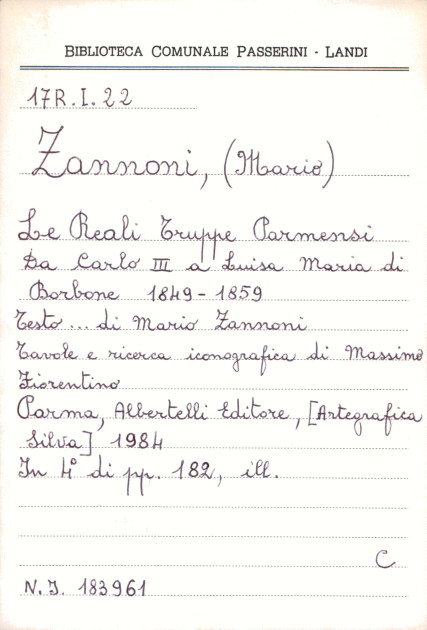 BIBLIOTECA COMUNALE PASSERINI - LANDI
17R.I.22
Zannoni, (Mario)
Le Reali Truppe Parmensi
Da Carlo III a Luisa Maria di
Borbone 1849-1859
Testo... di Mario Zannoni
Tavole e ricerca iconografica di Massimo
Fiorentino
Parma, Albertelli Editore, [Artegrafica
Silva] 1984
In 4° di pp. 182, ill.
C
N.I. 183961